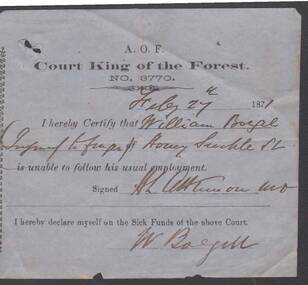 A. O. F.
Court King of the Forest.
NO. 3770.
Feby 27th 1871
I hereby Certify that William Boegel
Injury to finger Honey Suckle St
is unable to follow his usual employment.
Signed H L Atkinson MD
I hereby declare myself on the Sick Funds of the above Court.
W Boegell